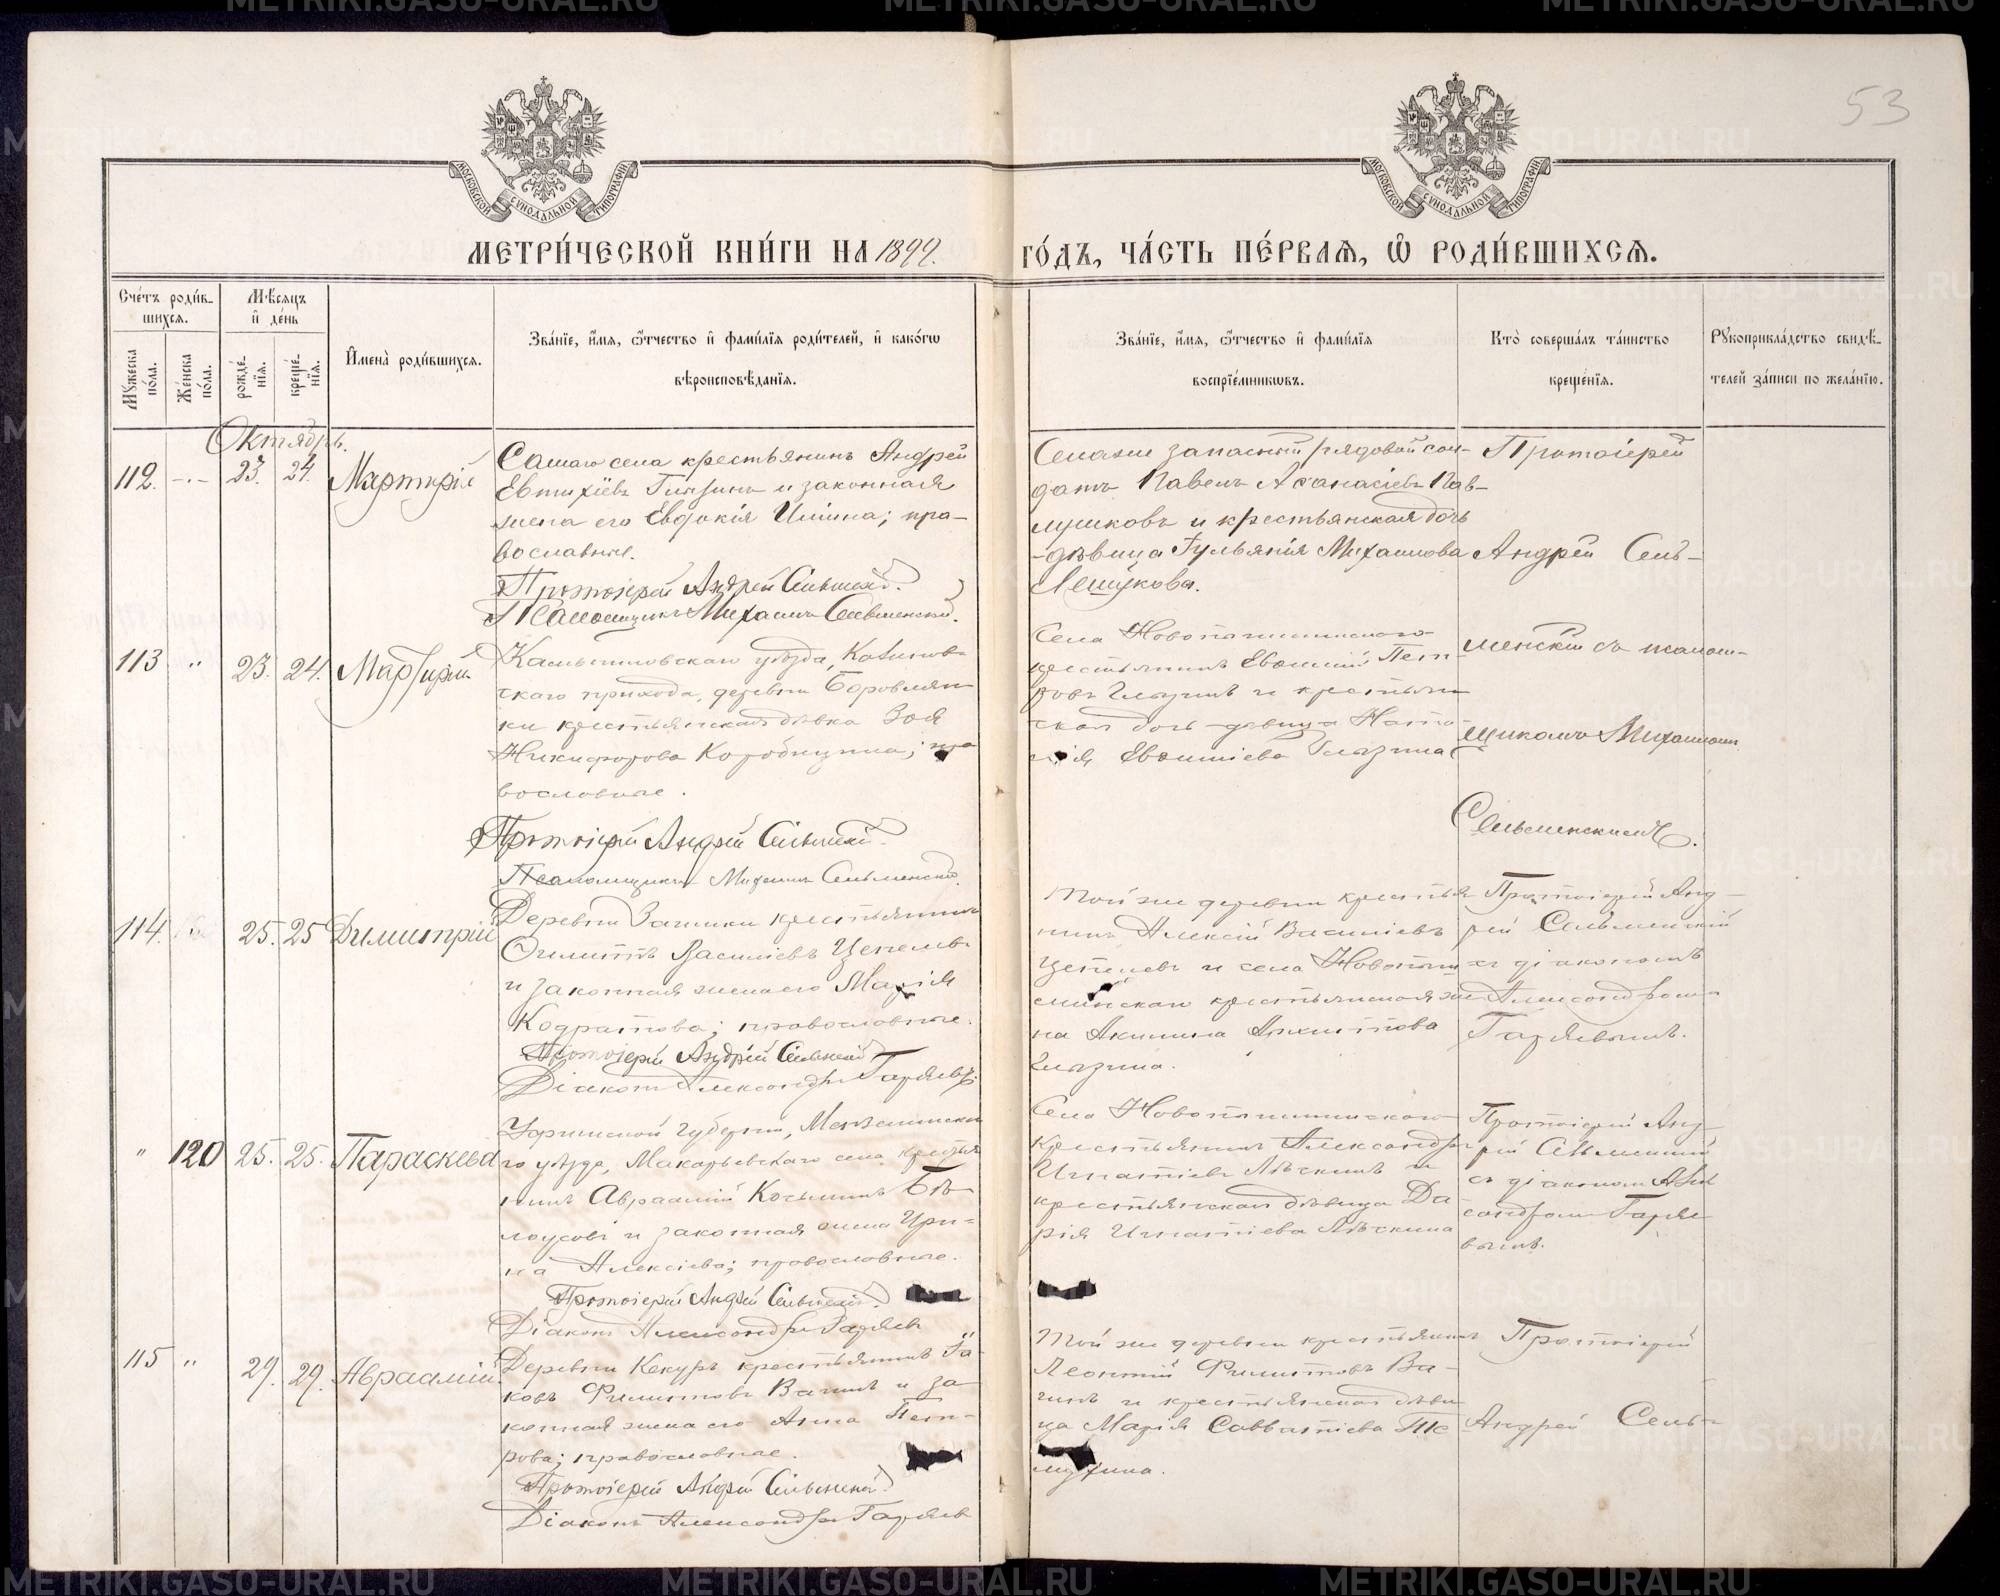 METRIKI.GASO-URAL.RU
53
МОСКОВСКОЙ СУНОДАЛЬНОЙ ТИПОГРАФІИ
МОСКОВСКОЙ СУНОДАЛЬНОЙ ТИПОГРАФІИ
МЕТРИ́ЧЕСКОЙ КНИ́ГИ НА 1899. ГО́ДЪ, ЧА́СТЬ ПЕ́РВАѦ, Ѽ РОДИ́ВШИХСѦ.
Сче́тъ роди́в-
шихсѧ.
Мꙋжеска по́ла.
Же́нска по́ла.
Мѣсѧцъ
и҆ де́нь
рожде́-
нїѧ.
креще́-
нїѧ.
И҆мена̀ роди́вшихсѧ.
Зва́нїе, и҆́мѧ, ѻ҆́тчество и҆ фами́лїѧ роди́телей, и҆ како́гѡ
вѣроисповѣ́данїѧ.
Зва́нїе, и҆́мѧ, ѻ҆́тчество и҆ фами́лїѧ
воспрїе́мникѡвъ.
Кто̀ соверша́лъ та́инство
креще́нїѧ.
Рꙋкоприкла́дство свидѣ́-
телей за́писи по жела́нїю.
Октябрь.
112. -"- 23. 24. Мартирій
Самаго села крестьянинъ Андрей
Евтихіевъ Глызинъ и законная
жена его Евдокія Ильина; пра-
вославные.
Протоіерей Андрей Сельменскій.
Псаломщикъ Михаилъ Сельменскій.
Села же запасный рядовой сол-
датъ Павелъ Аѳанасіевъ Пав-
лушковъ и крестьянская дочь
-дѣвица Іульянія Михаилова
Протоіерей
Андрей Сель-
113 " 23. 24. Мартирій
Камышловскаго уѣзда,
скаго прихода, деревни Боровлян-
ки крестьянская дѣвка Зоя
Никифорова Коробицына; пра
вославные.
Протоіерей Андрей Сельменскій.
Псаломщикъ Михаилъ Сельменскій.
Села Новопышминскаго
крестьянинъ Евѳимій Пет-
ровъ Глызинъ и крестьян
ская дочь дѣвица Ната-
лія Евѳиміева Глызина
менскій съ псалом-
щикомъ Михаиломъ
Сельменскимъ.
114. 25. 25 Димитрій
Деревни крестьянинъ
Василіевъ Цепелевъ
и законная жена его Марія
Кодратова; православные.
Протоіерей Андрей Сельменскій
Діаконъ Александръ Гаряевъ.
Той же деревни крестья
нинъ Алексій Василіевъ
Цепелевъ и села Новопыш
минскаго крестьянская же
на Акилина
Глызина.
Протоіерей Анд-
рей Сельменскій
съ діакономъ
Александром-
Гаряевымъ.
" 120 25. 25. Параскева
Уфимской губерніи, Мензелинска
го уѣзда, Макарьевскаго села крестья
нинъ Авраамій Косьминъ Бѣ-
лоусовъ и законная жена Ири-
на Алексіева; православные.
Протоіерей Андрей Сельменскій.
Діаконъ Александръ Гаряевъ
Села Новопышминскаго
крестьянинъ Александръ
Игнатіевъ Лѣскинъ и
крестьянская дѣвица Да
рія Игнатіева Лѣскина
Протоіерей Анд-
рей Сельменскій
съ діаконом Алек
сандром Гаряе
вымъ.
115 " 29. 29. Авраамій
Деревни Кекуръ крестьянинъ Іа-
ковъ Филиповъ Вагинъ и за
конная жена его Анна Пет-
рова; православные.
Протоіерей Андрей Сельменскій
Діаконъ Александръ Гаряевъ
Той же деревни крестьянин
Леонтій Филиповъ Ва-
гинъ и крестьянская дѣви
ца Марія Савватіева
Протоіерей
Андрей Сель-